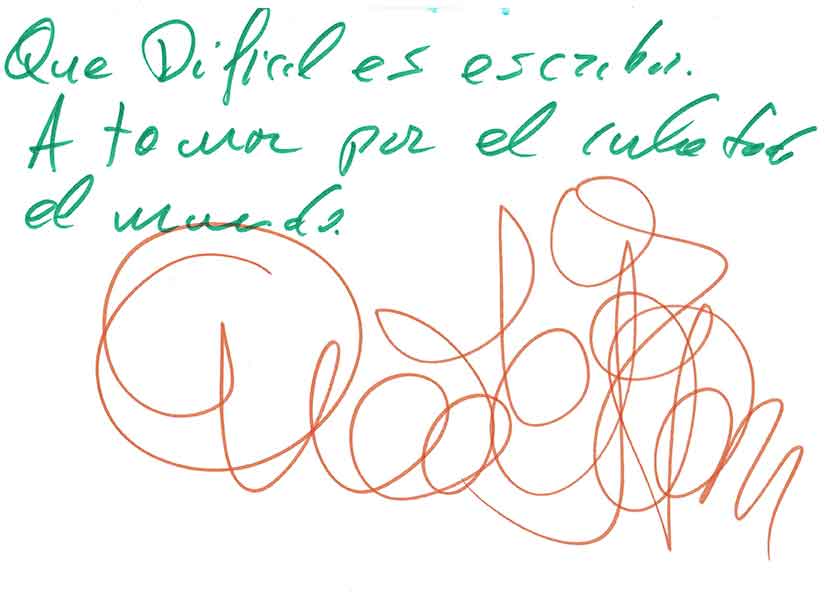 Que Dificil es escribir.
A tomar por el culo todo
el mundo.